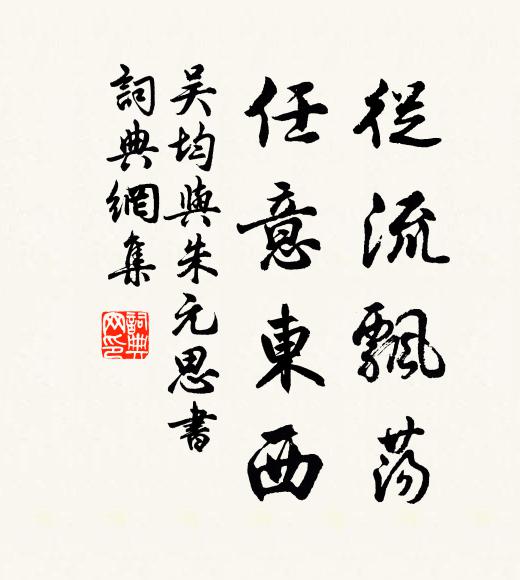 從流飄蕩
任意東西
吳均與朱元思書
詞典網集
詞典網印